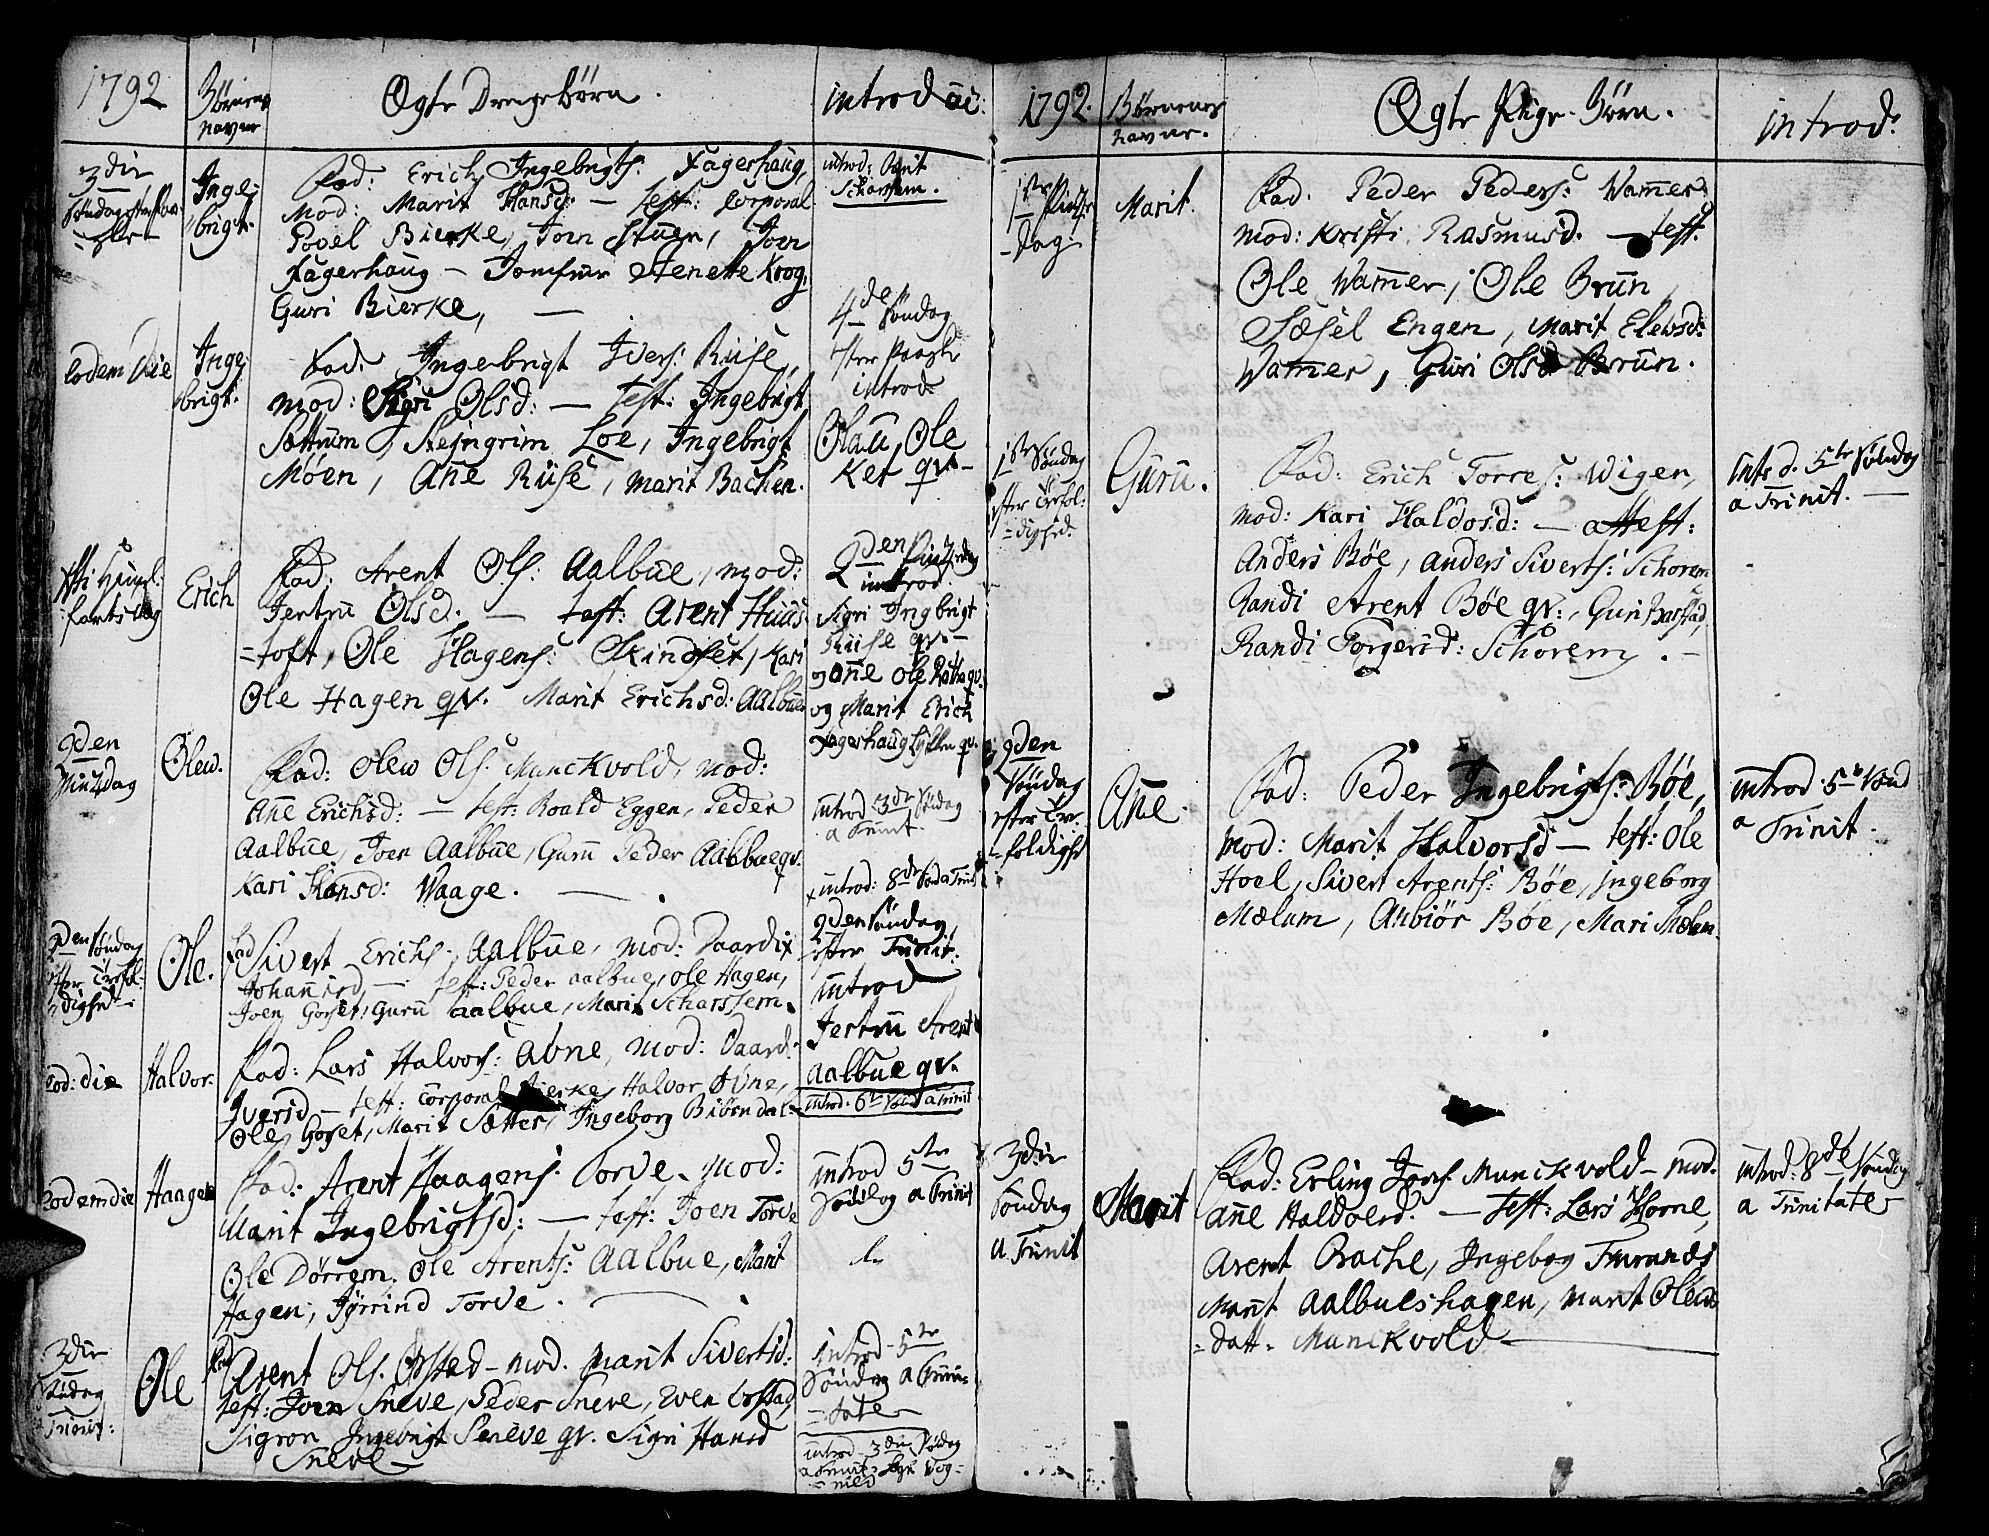 1792
Børnenes
navne
Ægte Drengebørn.
introd ac:
3die
Søndag efter Paa-
=ske
Inge-
brigt
Fad: Erich Ingebrigts: Fagerhaug,
Mod: Marit Hansd: — test: Corporal
Povel Bierke, Joen Stuen, Joen
Fagerhaug — Jomfrue Stenette Krog,
Guri Bierke, —
introd: Marit
Scharsem.
eodem Die
Inge-
brigt:
Fad: Ingebrigt Ivers: Riise,
mod: Sigri Olsd: — test: Ingebrigt
Sættrum, Stejngrim Loe, Ingebrigt
Møen, Ane Riise, Marit Bachen.
4de Søndag
efter Paaske
introd:
Olau, Ole
Ket qv—
Xsti Himel:
farts dag
Erich
Fad: Arent Ols. Aalbue, mod:
Jertru Olsd. — test: Arent Huus-
=toft, Ole Hagens: Skindset, Kari
Ole Hagen qv. Marit Erichsd: Aalbue
2den Pintzedag
introd
Sigri Ingbrigt
Riise qv—
og Ane Ole qv.
og Marit Erich
Fagerhaug Lyken qv.
2den
Pintzdag
Olew.
Fad: Olew Ols. Munckvold, mod:
Ane Erichsd: — test: Roald Eggen, Peder
Aalbue, Joen Aalbue, Guru Peder Aalbue qv.
Kari Hansd: Waage. —
introd 3die Sødag
a Trinit.
2den Søndag
efter Trefol-
=dighed
Ole.
Fad Sivert Erichs: Aalbue, mod: Daardi
Johannisd, — test: Peder Aalbue, Ole Hagen,
Joen Gorset, Guru Aalbue, Marit Scharssem.
introd: 8de Sød a Trinit
2den Søndag
efter Trinit:
introd
Jertru Arent
Aalbue qv.
eod: die
Halvor.
Fad: Lars Halvors: Aune, mod: Daardi
Iversd — test: Corporal Bierke, Halvor Aune,
Ole Gorset, Marit Sætter, Ingeborg Biørndal.
introd. 6te Sønd a Trinit
eodem die
Haagen
Fad: Arent Haagens. Torve, mod:
Marit Ingebrigtsd: — test: Joen Torve
Ole Dørrem. Ole Arents: Aalbue, Marit
Hagen, Jørrind Torve. —
introd 5te
Søndag a Trinit
3die
Sødag
a Trinit:
Ole
Fad Arent Ols. Ørstad — mod. Marit Sivertsd:
test: Joen Sneve, Peder Sneve, Ørstad,
Sigron Ingebrigt Sneve qv. Sigri Hansd
Sneve —
introd 5te
Søndag a Trini-
=tate
introd 3die Sødag
a Trinit:
1792.
Børnenes
navne.
Ægte Pige-Børn.
introd:
1ste Pintze-
=dag
Marit.
Fad. Peder Peders: Wamer
mod: Kristi Rasmusd. — test.
Ole Wamer, Ole Brun
Sæsel Engen, Marit Elewsd:
Wamer, Guri Olsd Brun.
1ste Søndag
efter Trefol:
=dighed.
Guru.
Fad: Erich Torres: Wigen,
mod: Kari Haldosd: — test:
Anders Bøe, Anders Siverts: Schorem
Randi Arent Bøe qv:, Guri Barstad,
Randi Torgersd: Schorem. —
Introd. 5te Søndag
a Trinit. —
2den
Søndag
efter Tre-
=foldighed
Ane.
Fad: Peder Ingebrigts: Bøe,
mod: Marit Halvorsd — test: Ole
Hoel, Sivert Arents: Bøe, Ingeborg
Mælum, Anbiør Bøe, Mari Mælum.
introd. 5te Sønd
a Trinit.
3die
Søndag
a Trinit
Marit
Fad: Erling Joens. Munckvold — mod.
Ane Haldoersd. — test: Lars Horne,
Arent Bache, Ingebog
Marit Aalbueshagen, Marit Olews
=datt. Munckvold —
introd: 8de Søndag
a Trinitate